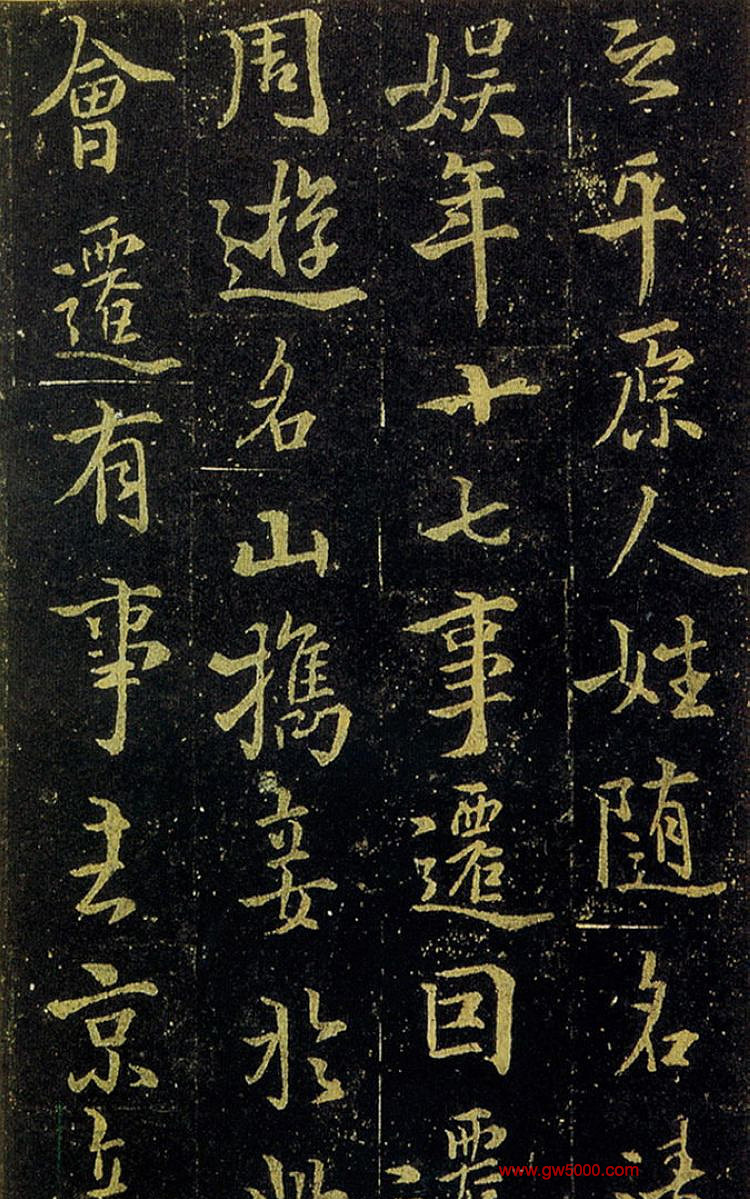 之平原人姓随名清
娱年十七事遷因遷
周遊名山攜妾於此
會遷有事去京妾
www.gw5000.com